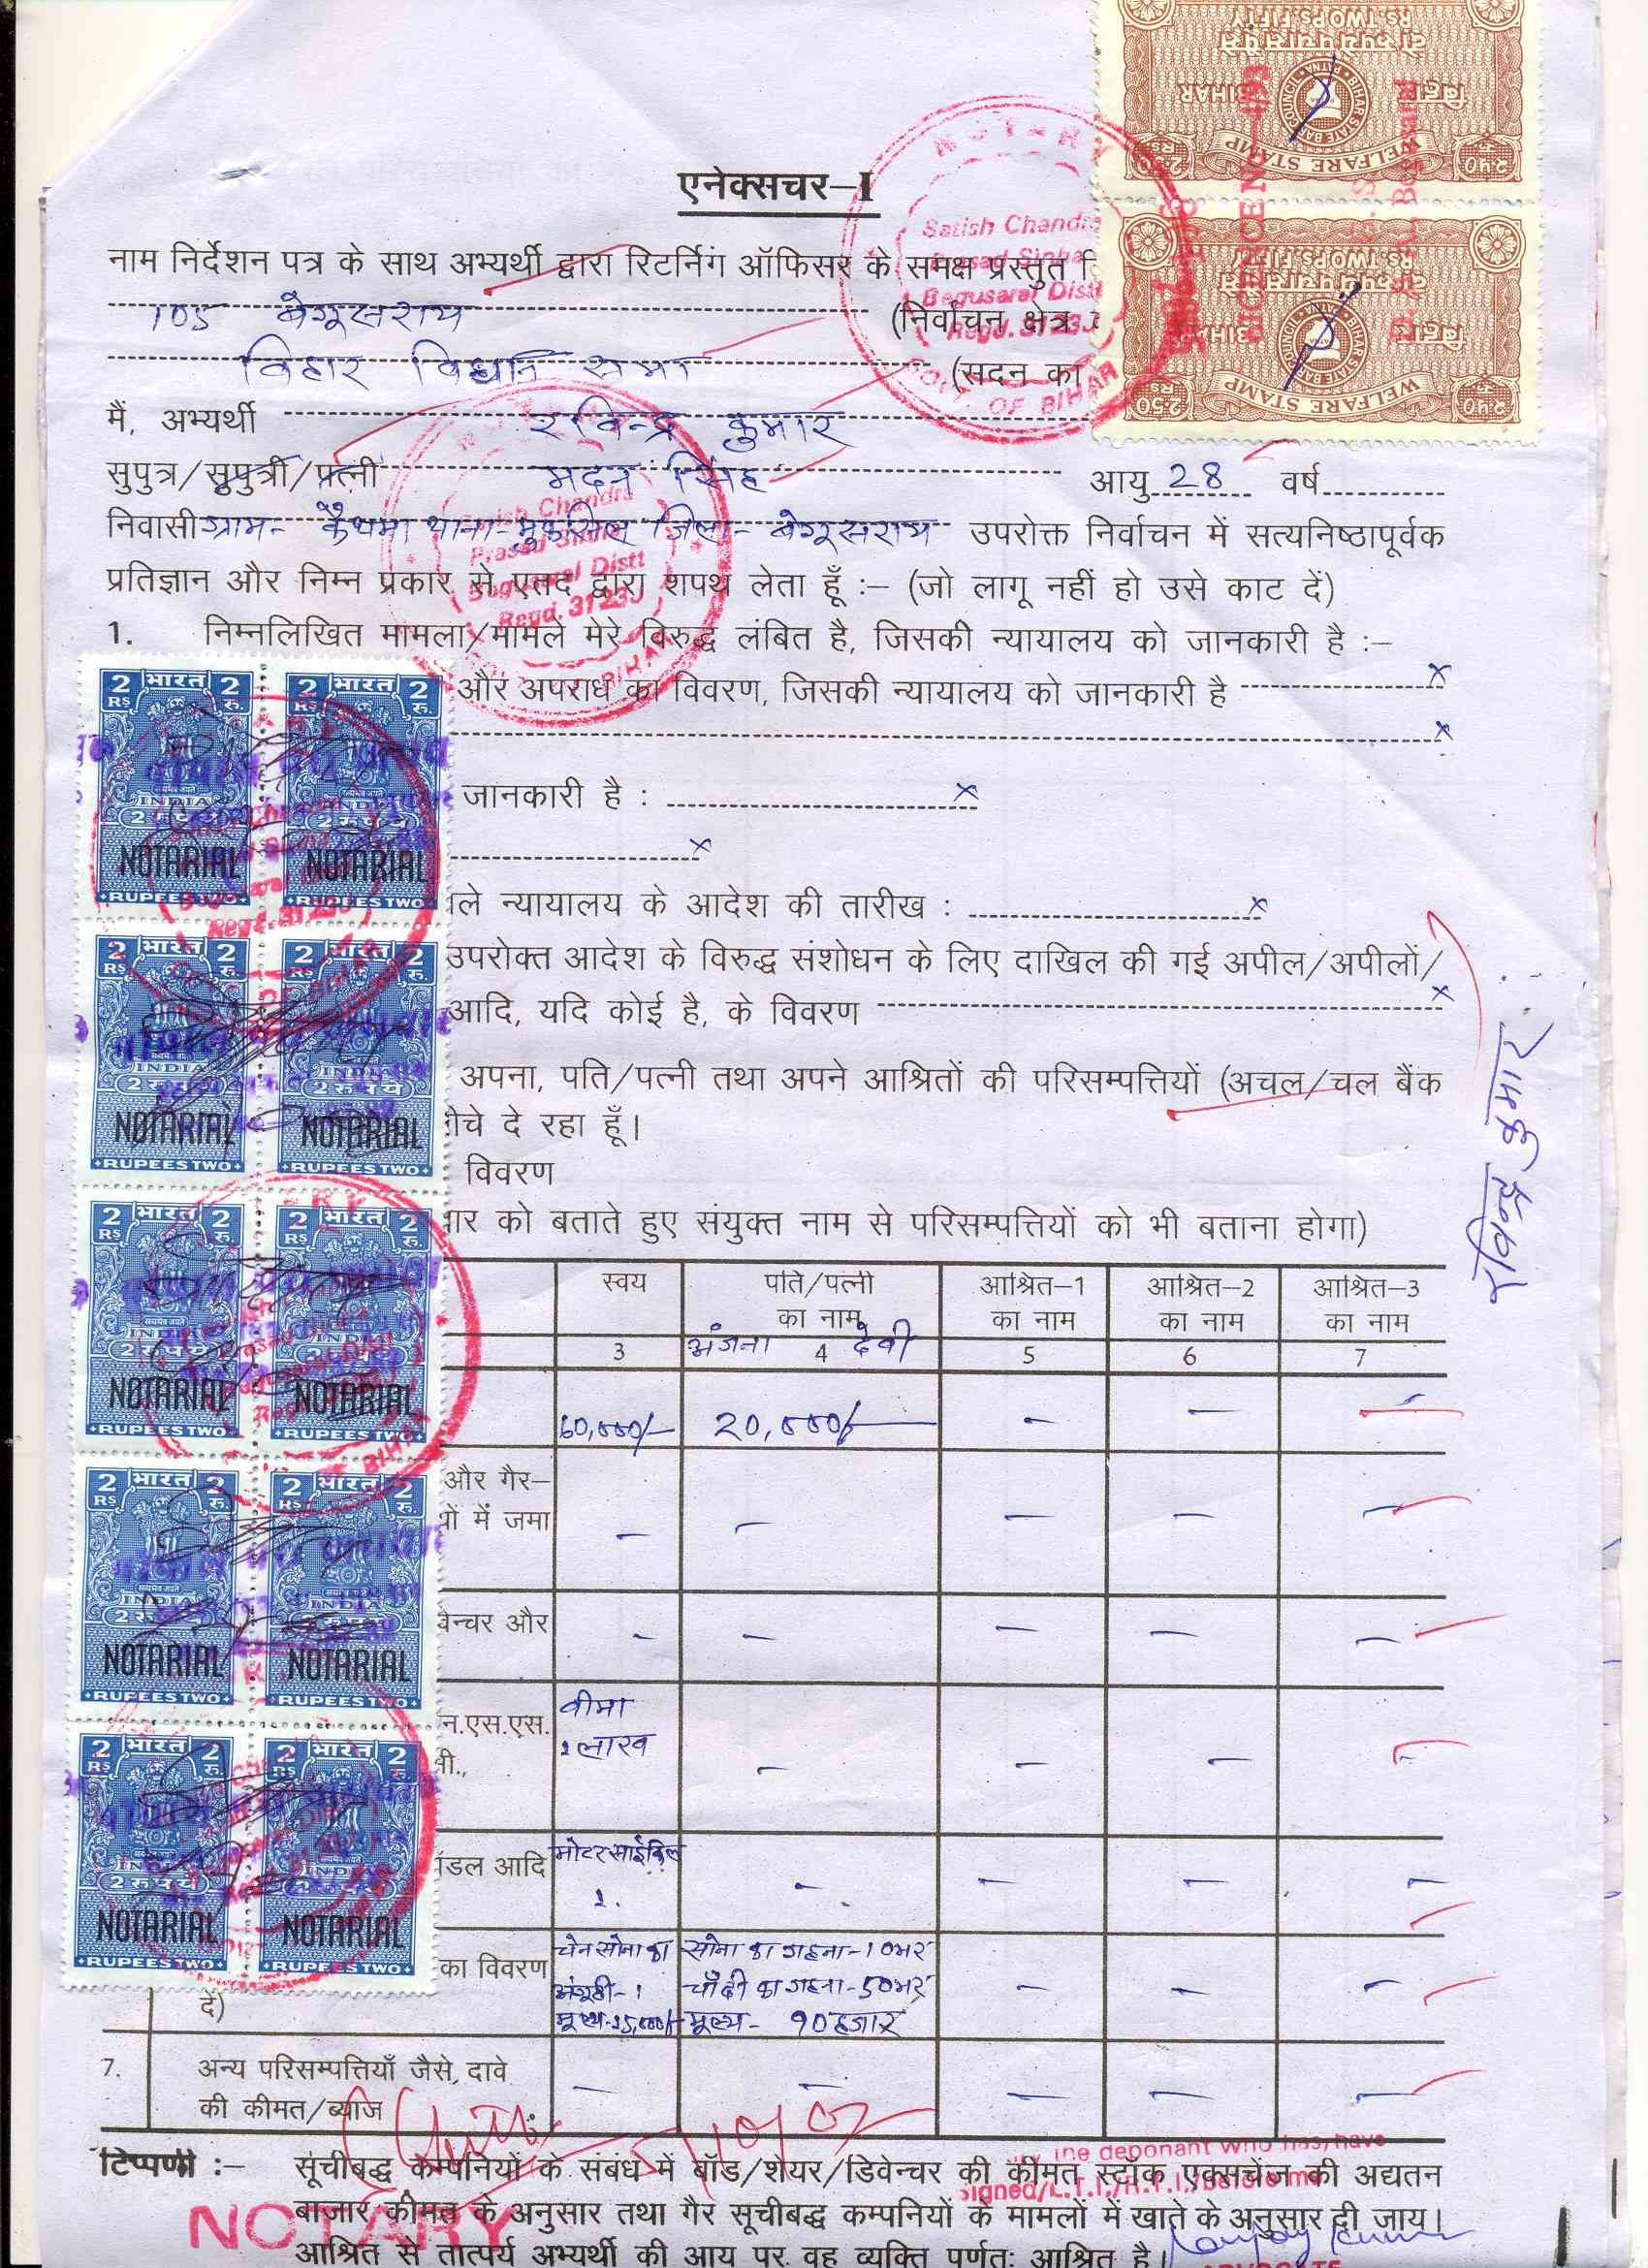 एनेक्सचर–I
नाम निर्देशन पत्र के साथ अभ्यर्थी द्वारा रिटर्निंग ऑफिसर के समक्ष प्रस्तुत
105 बेगूसराय (निर्वाचन क्षेत्र
बिहार विधान सभा (सदन का
मैं, अभ्यर्थी रविन्द्र कुमार
सुपुत्र/सुपुत्री/पत्नी मदन सिंह आयु 28 वर्ष
निवासी ग्राम- कैथमा थाना- मुफसिल जिला- बेगूसराय उपरोक्त निर्वाचन में सत्यनिष्ठापूर्वक
प्रतिज्ञान और निम्न प्रकार से एतद द्वारा शपथ लेता हूँ :– (जो लागू नहीं हो उसे काट दें)
1. निम्नलिखित मामला/मामले मेरे विरुद्ध लंबित है, जिसकी न्यायालय को जानकारी है :–
और अपराध का विवरण, जिसकी न्यायालय को जानकारी है x
x
जानकारी है : x
x
ले न्यायालय के आदेश की तारीख : x
उपरोक्त आदेश के विरुद्ध संशोधन के लिए दाखिल की गई अपील/अपीलों/
आदि, यदि कोई है, के विवरण x
अपना, पति/पत्नी तथा अपने आश्रितों की परिसम्पत्तियों (अचल/चल बैंक
चे दे रहा हूँ।
विवरण
ार को बताते हुए संयुक्त नाम से परिसम्पत्तियों को भी बताना होगा)
स्वय पति/पत्नी का नाम आश्रित–1 का नाम आश्रित–2 का नाम आश्रित–3 का नाम
3 अंजना 4 देवी 5 6 7
60,000/- 20,000/- – – –
और गैर–
ों में जमा – – – – –
वेन्चर और – – – – –
न.एस.एस. बीमा
वी., 1 लाख – – – –
ॉडल आदि मोटरसाईकिल
1. – – – –
चेन सोना का सोना का गहना-10भर
का विवरण अंगूठी-1 चाँदी का गहना-50भर – – –
दें) मूल्य-25,000/- मूल्य- 90हजार
7. अन्य परिसम्पत्तियाँ जैसे, दावे
की कीमत/ब्याज – – – – –
टिप्पणी :– सूचीबद्ध कम्पनियों के संबंध में बॉड/शेयर/डिवेन्चर की कीमत स्टॉक एक्सचेंज की अद्यतन
बाजार कीमत के अनुसार तथा गैर सूचीबद्ध कम्पनियों के मामलों में खाते के अनुसार दी जाय।
आश्रित से तात्पर्य अभ्यर्थी की आय पर वह व्यक्ति पूर्णतः आश्रित है।
रविन्द्र कुमार
NOTARY
Satish Chandra
Prasad Sinha
Begusarai Distt
Regd. 3123
GOVT. OF BIHAR
the deponant who has/have
signed/L.T.I./R.T.I./before me
ADVOCATE
BIHAR STATE BAR COUNCIL PATNA
WELFARE STAMP
बिहार BIHAR
दो रूपये पचास पैसे
Rs.TWO PS.FIFTY
Rs. 2.50
भारत
2 Rs 2 रु.
INDIA
2 रुपये
NOTARIAL
RUPEES TWO